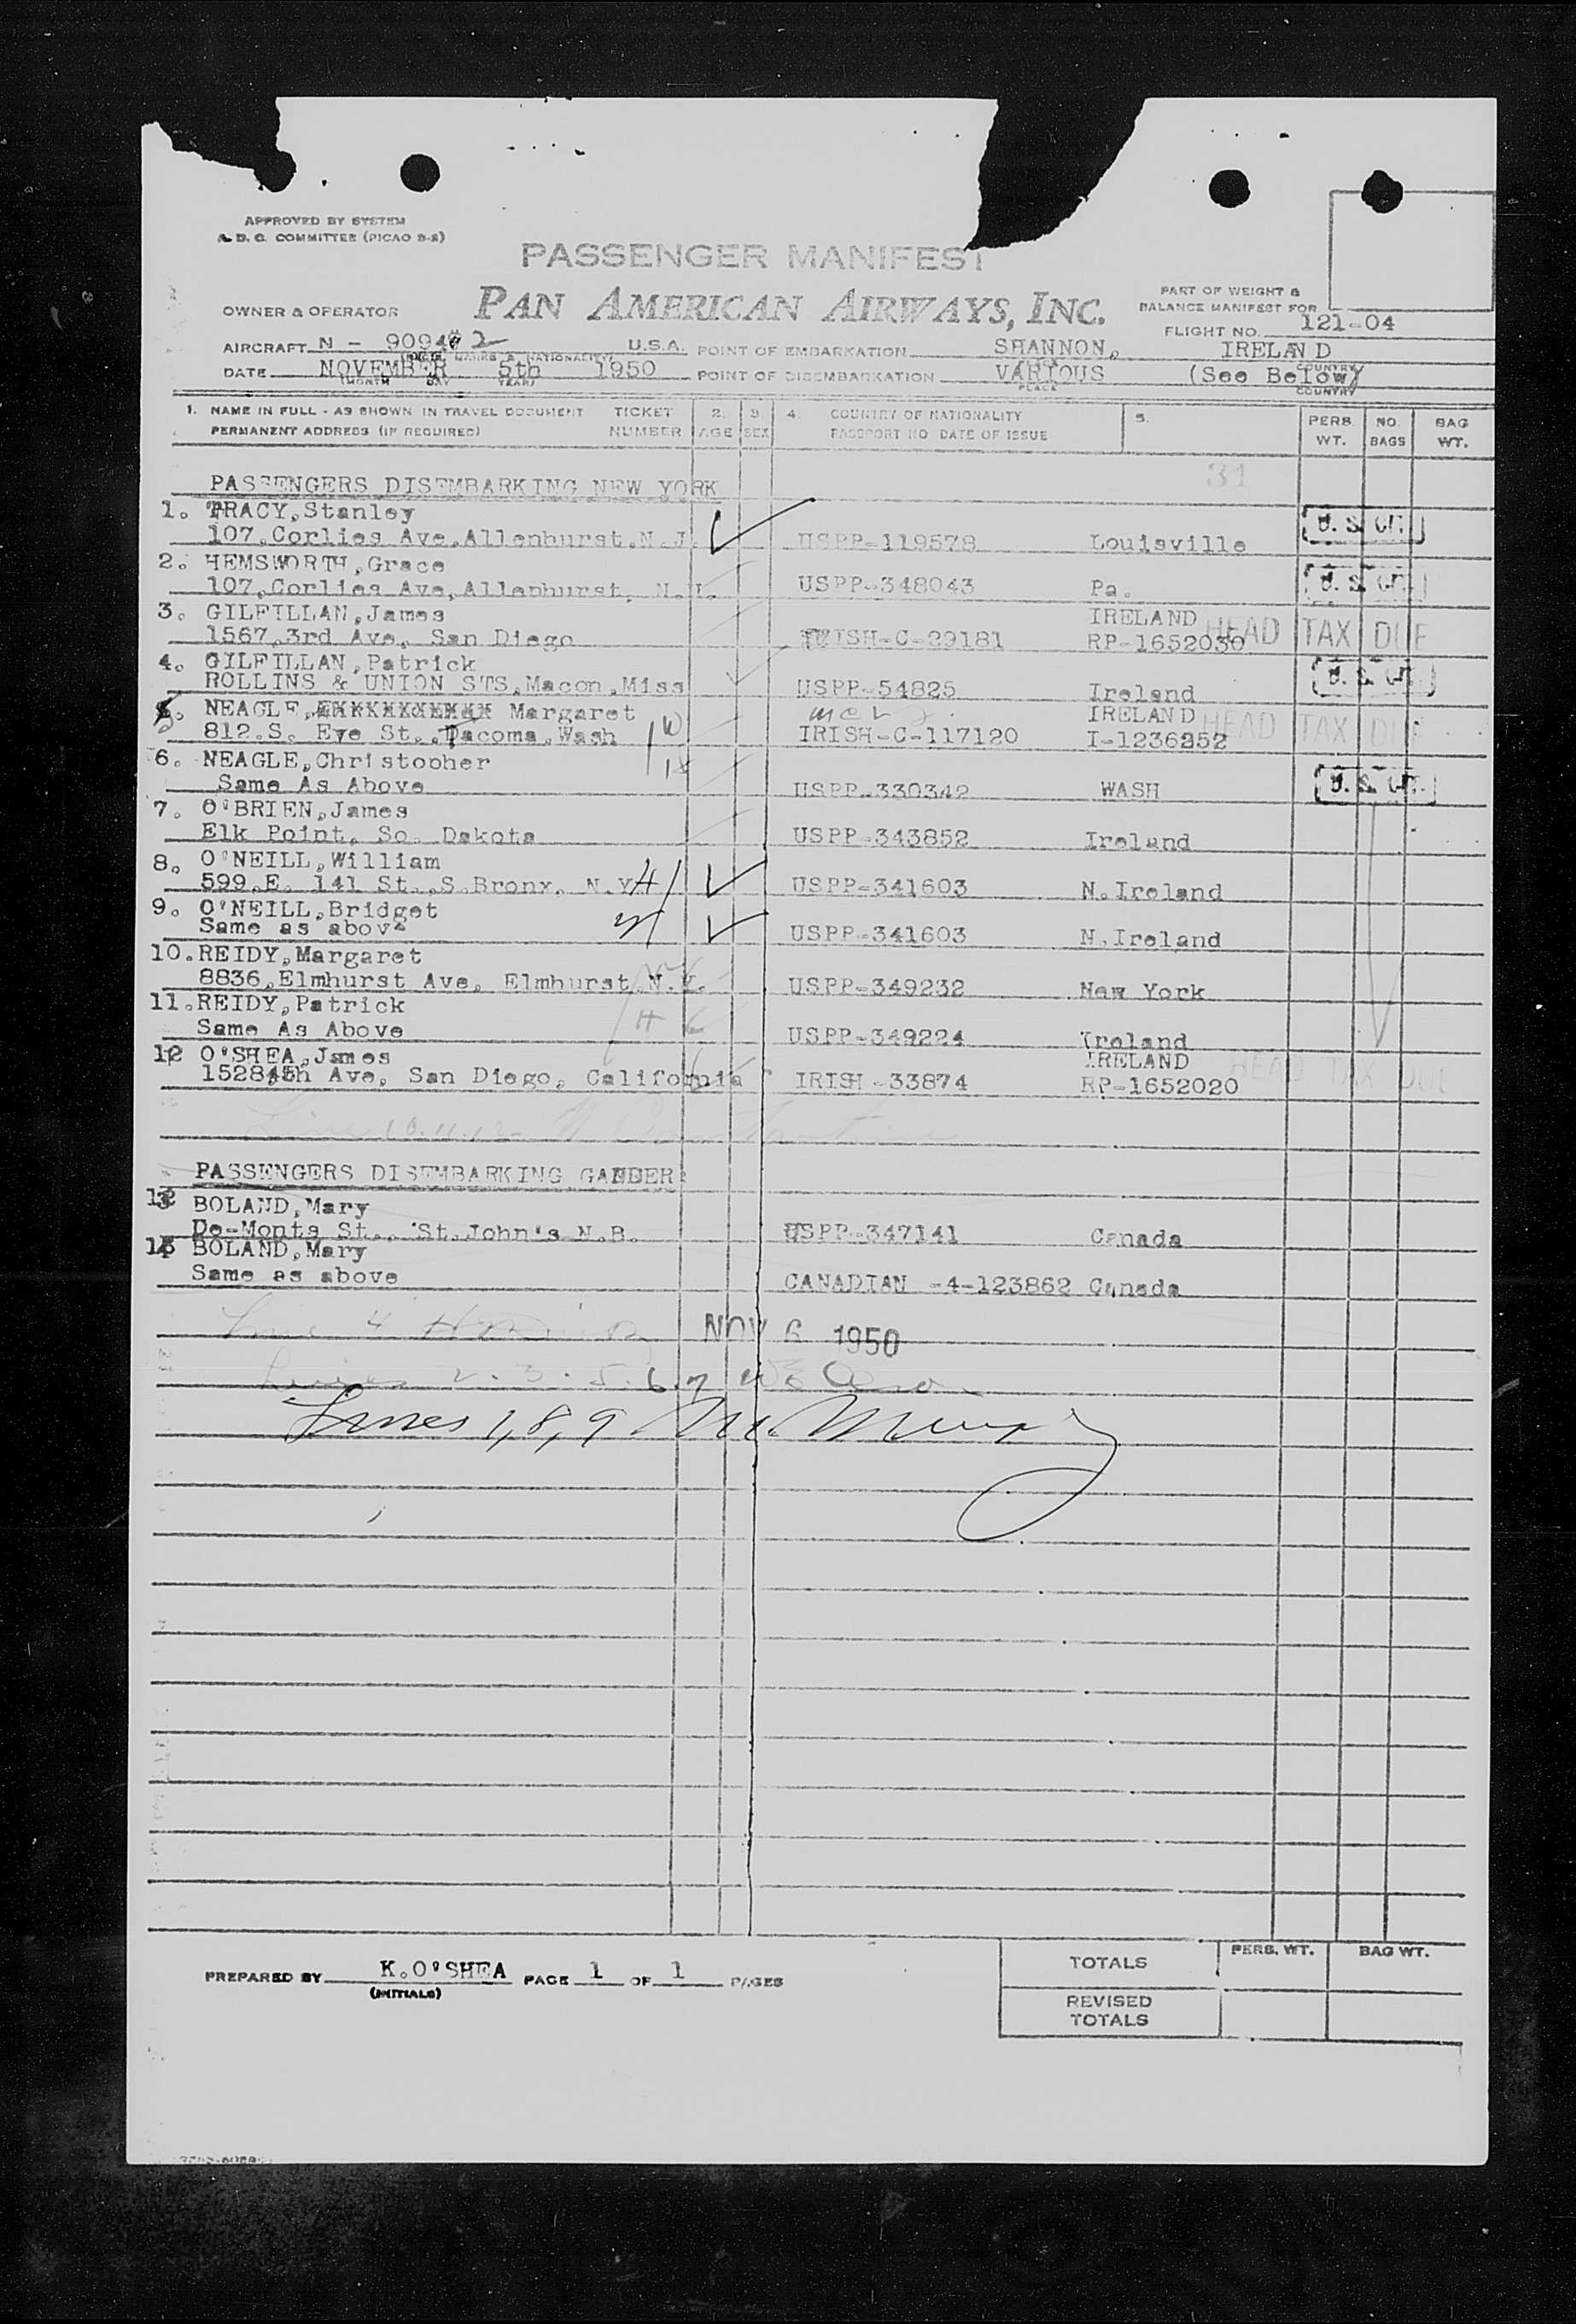 APPROVED BY SYSTEM
A. D. C. COMMITTEE (PICAO S-2)
PASSENGER MANIFEST
OWNER & OPERATOR PAN AMERICAN AIRWAYS, INC.
PART OF WEIGHT &
BALANCE MANIFEST FOR
FLIGHT NO. 121-04
AIRCRAFT N - 9094 2 U.S.A. POINT OF EMBARKATION SHANNON, IRELAND
DATE NOVEMBER 5th 1950 POINT OF DISEMBARKATION VARIOUS (See Below)
(MONTH DAY YEAR) PLACE COUNTRY
1. NAME IN FULL - AS SHOWN IN TRAVEL DOCUMENT TICKET 2. 3. 4. COUNTRY OF NATIONALITY 5. PERS. NO. BAG
PERMANENT ADDRESS (IF REQUIRED) NUMBER AGE SEX PASSPORT NO DATE OF ISSUE WT. BAGS WT.
31
PASSENGERS DISEMBARKING NEW YORK
1. TRACY,Stanley
107,Corlies Ave,Allenhurst.N.J. USPP-119578 Louisville U.S. CIT.
2. HEMSWORTH,Grace
107,Corlies Ave,Allenhurst, N.J. USPP-348043 Pa. U.S. CIT.
3. GILFILLAN,James IRELAND
1567,3rd Ave, San Diego IRISH-C-29181 RP-1652030 HEAD TAX DUE
4. GILFILLAN,Patrick
ROLLINS & UNION STS,Macon,Miss USPP-54825 Ireland U.S. CIT.
5. NEAGLE, Margaret IRELAND
812.S. Eye St.,Tacoma,Wash W IRISH-C-117120 I-1236252 HEAD TAX DUE
6. NEAGLE,Christopher
Same As Above USPP-330342 WASH U.S. CIT.
7. O'BRIEN,James
Elk Point, So. Dakota USPP-343852 Ireland
8. O'NEILL,William
599.E. 141 St.,S.Bronx, N.Y. H USPP-341603 N.Ireland
9. O'NEILL,Bridget
Same as above W USPP-341603 N.Ireland
10.REIDY,Margaret
8836,Elmhurst Ave, Elmhurst,N.Y. USPP-349232 New York
11.REIDY,Patrick
Same As Above H USPP-349224 Ireland
12 O'SHEA,James IRELAND
1528 5th Ave, San Diego, California IRISH -33874 RP-1652020 HEAD TAX DUE
Lines 10.11.12
PASSENGERS DISEMBARKING GANDER:
13 BOLAND,Mary
De-Monts St.. St.John's N.B. USPP-347141 Canada
BOLAND,Mary
Same as above CANADIAN -4-123862 Canada
Line 4 NOV 6 1950
Lines 2.3.5.6.7
Lines 1,8,9
PREPARED BY K.O'SHEA PAGE 1 OF 1 PAGES
(INITIALS)
PERS. WT. BAG WT.
TOTALS
REVISED
TOTALS